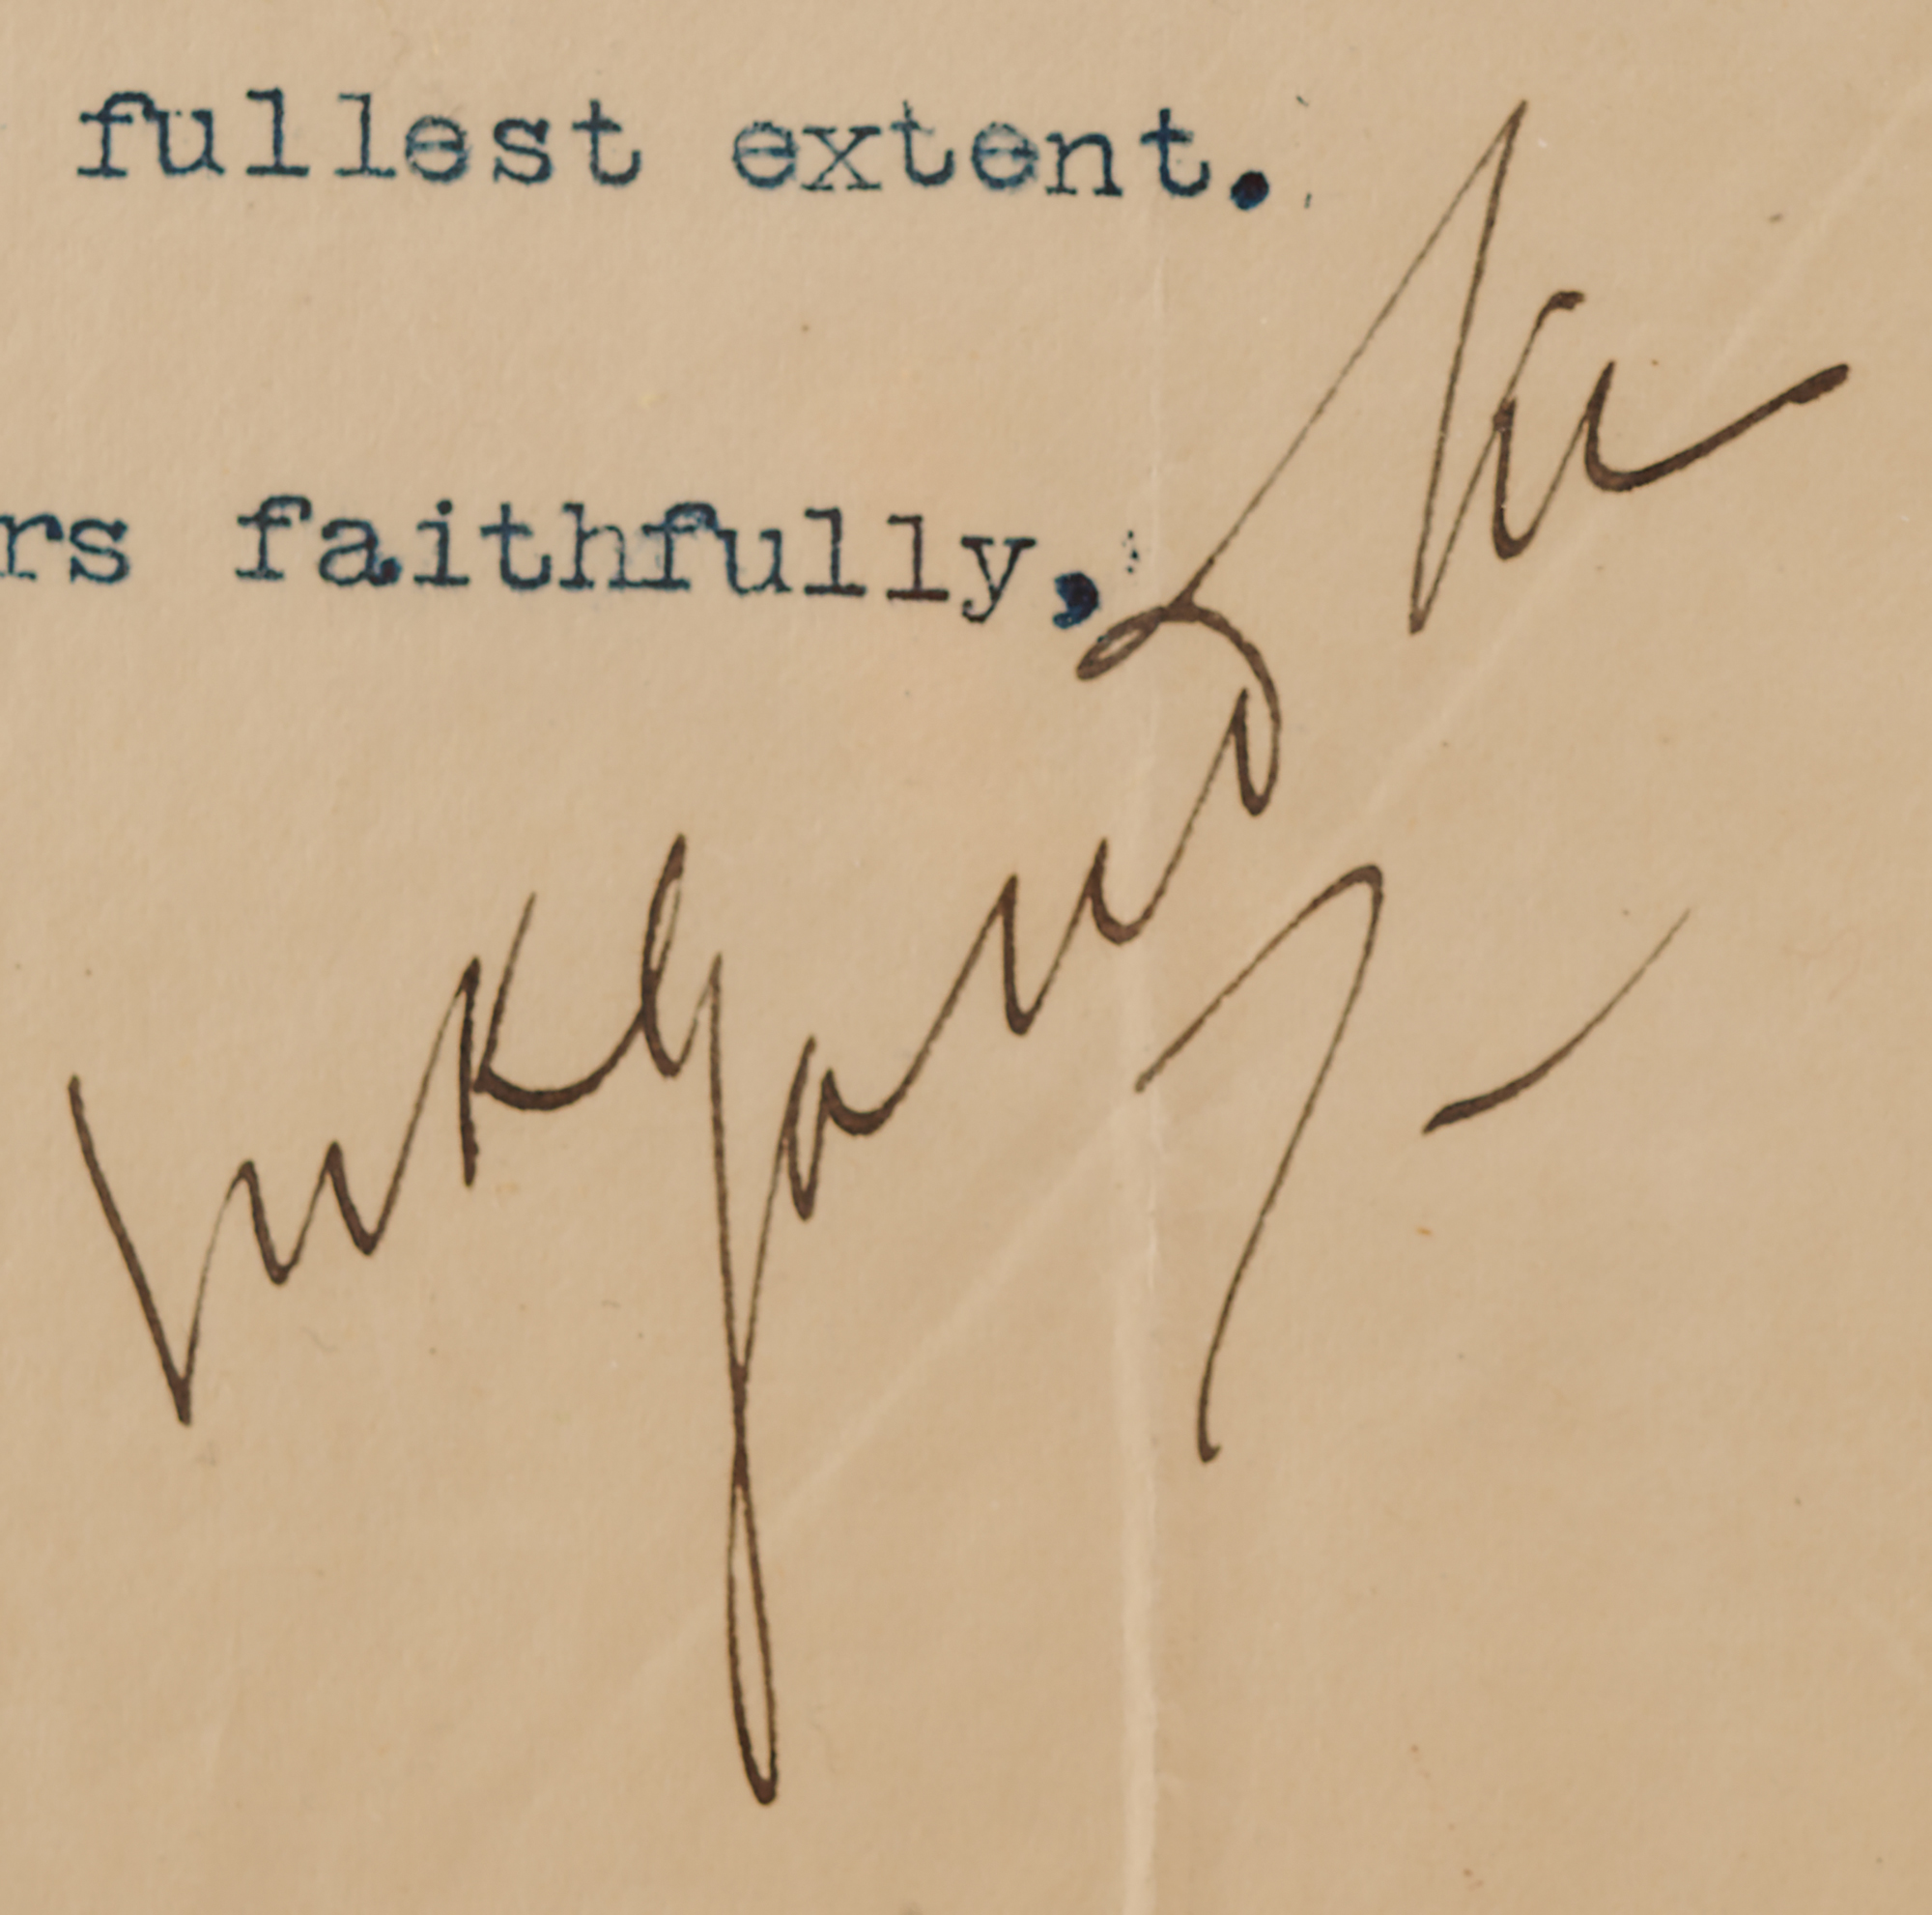 fullest extent.
rs faithfully,
MKGandhi